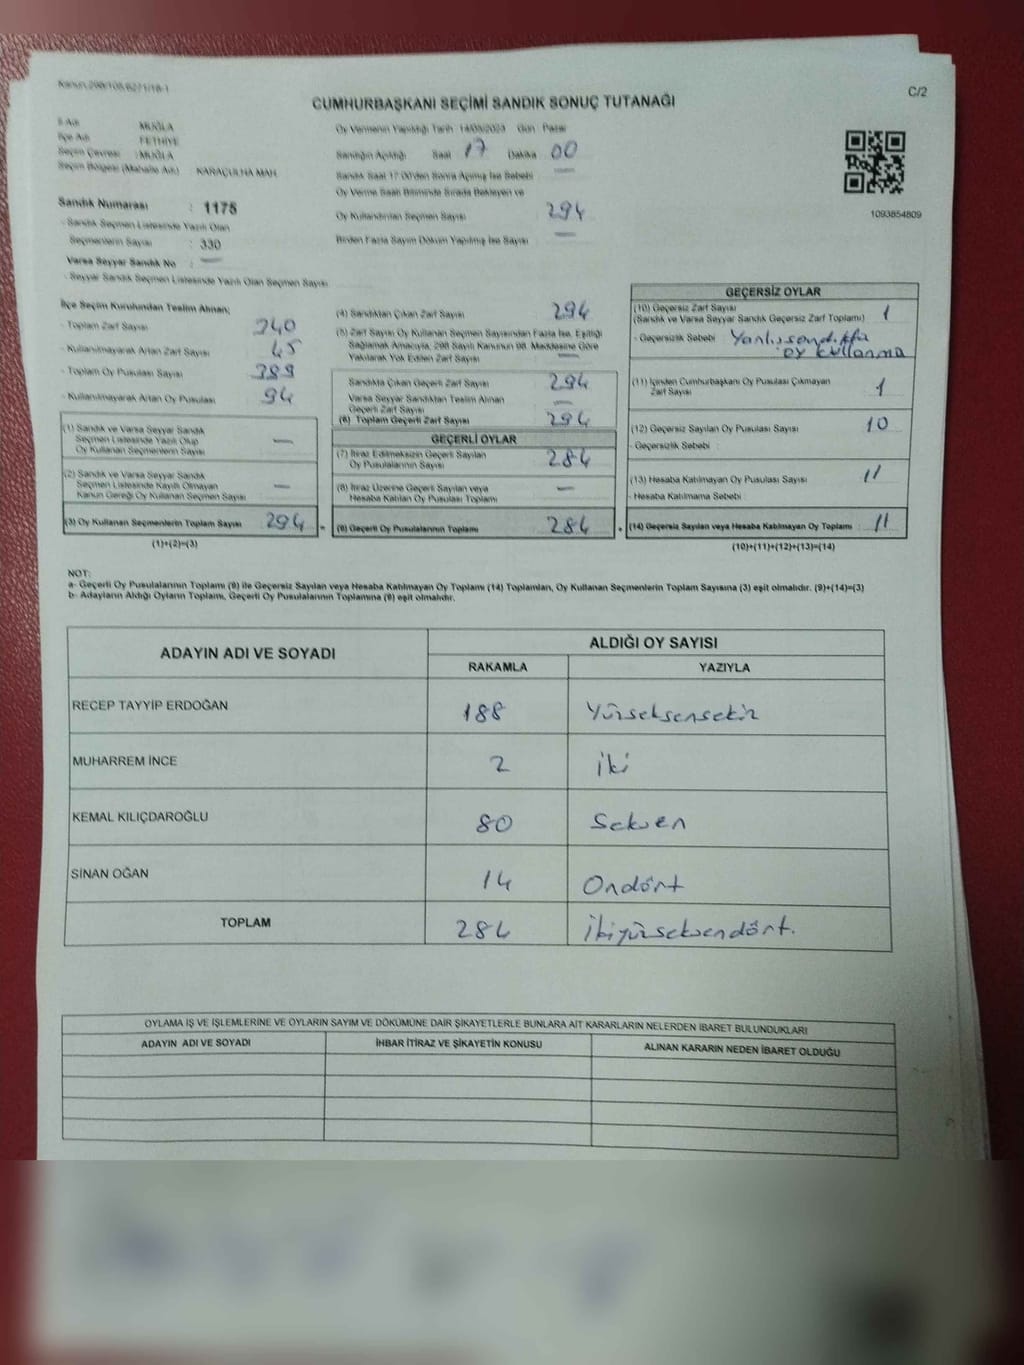 Kanun:298/105,6271/18-1
C/2
CUMHURBAŞKANI SEÇİMİ SANDIK SONUÇ TUTANAĞI
İl Adı : MUĞLA
İlçe Adı : FETHİYE
Seçim Çevresi : MUĞLA
Seçim Bölgesi (Mahalle Adı) : KARAÇULHA MAH.
Sandık Numarası : 1175
- Sandık Seçmen Listesinde Yazılı Olan
Seçmenlerin Sayısı : 330
Varsa Seyyar Sandık No : —
- Seyyar Sandık Seçmen Listesinde Yazılı Olan Seçmen Sayısı
Oy Vermenin Yapıldığı Tarih 14/05/2023 Gün Pazar
Sandığın Açıldığı Saat 17 Dakika 00
Sandık Saat 17:00'den Sonra Açılmış İse Sebebi —
Oy Verme Saati Bitiminde Sırada Bekleyen ve
Oy Kullandırılan Seçmen Sayısı 294
Birden Fazla Sayım Döküm Yapılmış İse Sayısı —
1093854809
İlçe Seçim Kurulundan Teslim Alınan;
- Toplam Zarf Sayısı 340
- Kullanılmayarak Artan Zarf Sayısı 45
- Toplam Oy Pusulası Sayısı 389
- Kullanılmayarak Artan Oy Pusulası 94
(1) Sandık ve Varsa Seyyar Sandık
Seçmen Listesinde Yazılı Olup
Oy Kullanan Seçmenlerin Sayısı —
(2) Sandık ve Varsa Seyyar Sandık
Seçmen Listesinde Kayıtlı Olmayan
Kanun Gereği Oy Kullanan Seçmen Sayısı —
(3) Oy Kullanan Seçmenlerin Toplam Sayısı 294 =
(1)+(2)=(3)
(4) Sandıktan Çıkan Zarf Sayısı 294
(5) Zarf Sayısı Oy Kullanan Seçmen Sayısından Fazla İse, Eşitliği
Sağlamak Amacıyla, 298 Sayılı Kanunun 98. Maddesine Göre
Yakılarak Yok Edilen Zarf Sayısı —
Sandıkta Çıkan Geçerli Zarf Sayısı 294
Varsa Seyyar Sandıktan Teslim Alınan
Geçerli Zarf Sayısı —
(6) Toplam Geçerli Zarf Sayısı 294
GEÇERLİ OYLAR
(7) İtiraz Edilmeksizin Geçerli Sayılan
Oy Pusulalarının Sayısı 284
(8) İtiraz Üzerine Geçerli Sayılan veya
Hesaba Katılan Oy Pusulası Toplamı —
(9) Geçerli Oy Pusulalarının Toplamı 284 +
GEÇERSİZ OYLAR
(10) Geçersiz Zarf Sayısı
(Sandık ve Varsa Seyyar Sandık Geçersiz Zarf Toplamı) 1
- Geçersizlik Sebebi : Yanlış sandıkta
oy kullanma
(11) İçinden Cumhurbaşkanı Oy Pusulası Çıkmayan
Zarf Sayısı 1
(12) Geçersiz Sayılan Oy Pusulası Sayısı 10
- Geçersizlik Sebebi :
(13) Hesaba Katılmayan Oy Pusulası Sayısı 11
- Hesaba Katılmama Sebebi :
(14) Geçersiz Sayılan veya Hesaba Katılmayan Oy Toplamı : 11
(10)+(11)+(12)+(13)=(14)
NOT:
a- Geçerli Oy Pusulalarının Toplamı (9) ile Geçersiz Sayılan veya Hesaba Katılmayan Oy Toplamı (14) Toplamları, Oy Kullanan Seçmenlerin Toplam Sayısına (3) eşit olmalıdır. (9)+(14)=(3)
b- Adayların Aldığı Oyların Toplamı, Geçerli Oy Pusulalarının Toplamına (9) eşit olmalıdır.
ADAYIN ADI VE SOYADI ALDIĞI OY SAYISI
RAKAMLA YAZIYLA
RECEP TAYYİP ERDOĞAN 188 Yüzseksensekiz
MUHARREM İNCE 2 iki
KEMAL KILIÇDAROĞLU 80 Seksen
SİNAN OĞAN 14 Ondört
TOPLAM 284 ikiyüzseksendört.
OYLAMA İŞ VE İŞLEMLERİNE VE OYLARIN SAYIM VE DÖKÜMÜNE DAİR ŞİKAYETLERLE BUNLARA AİT KARARLARIN NELERDEN İBARET BULUNDUKLARI
ADAYIN ADI VE SOYADI İHBAR İTİRAZ VE ŞİKAYETİN KONUSU ALINAN KARARIN NEDEN İBARET OLDUĞU